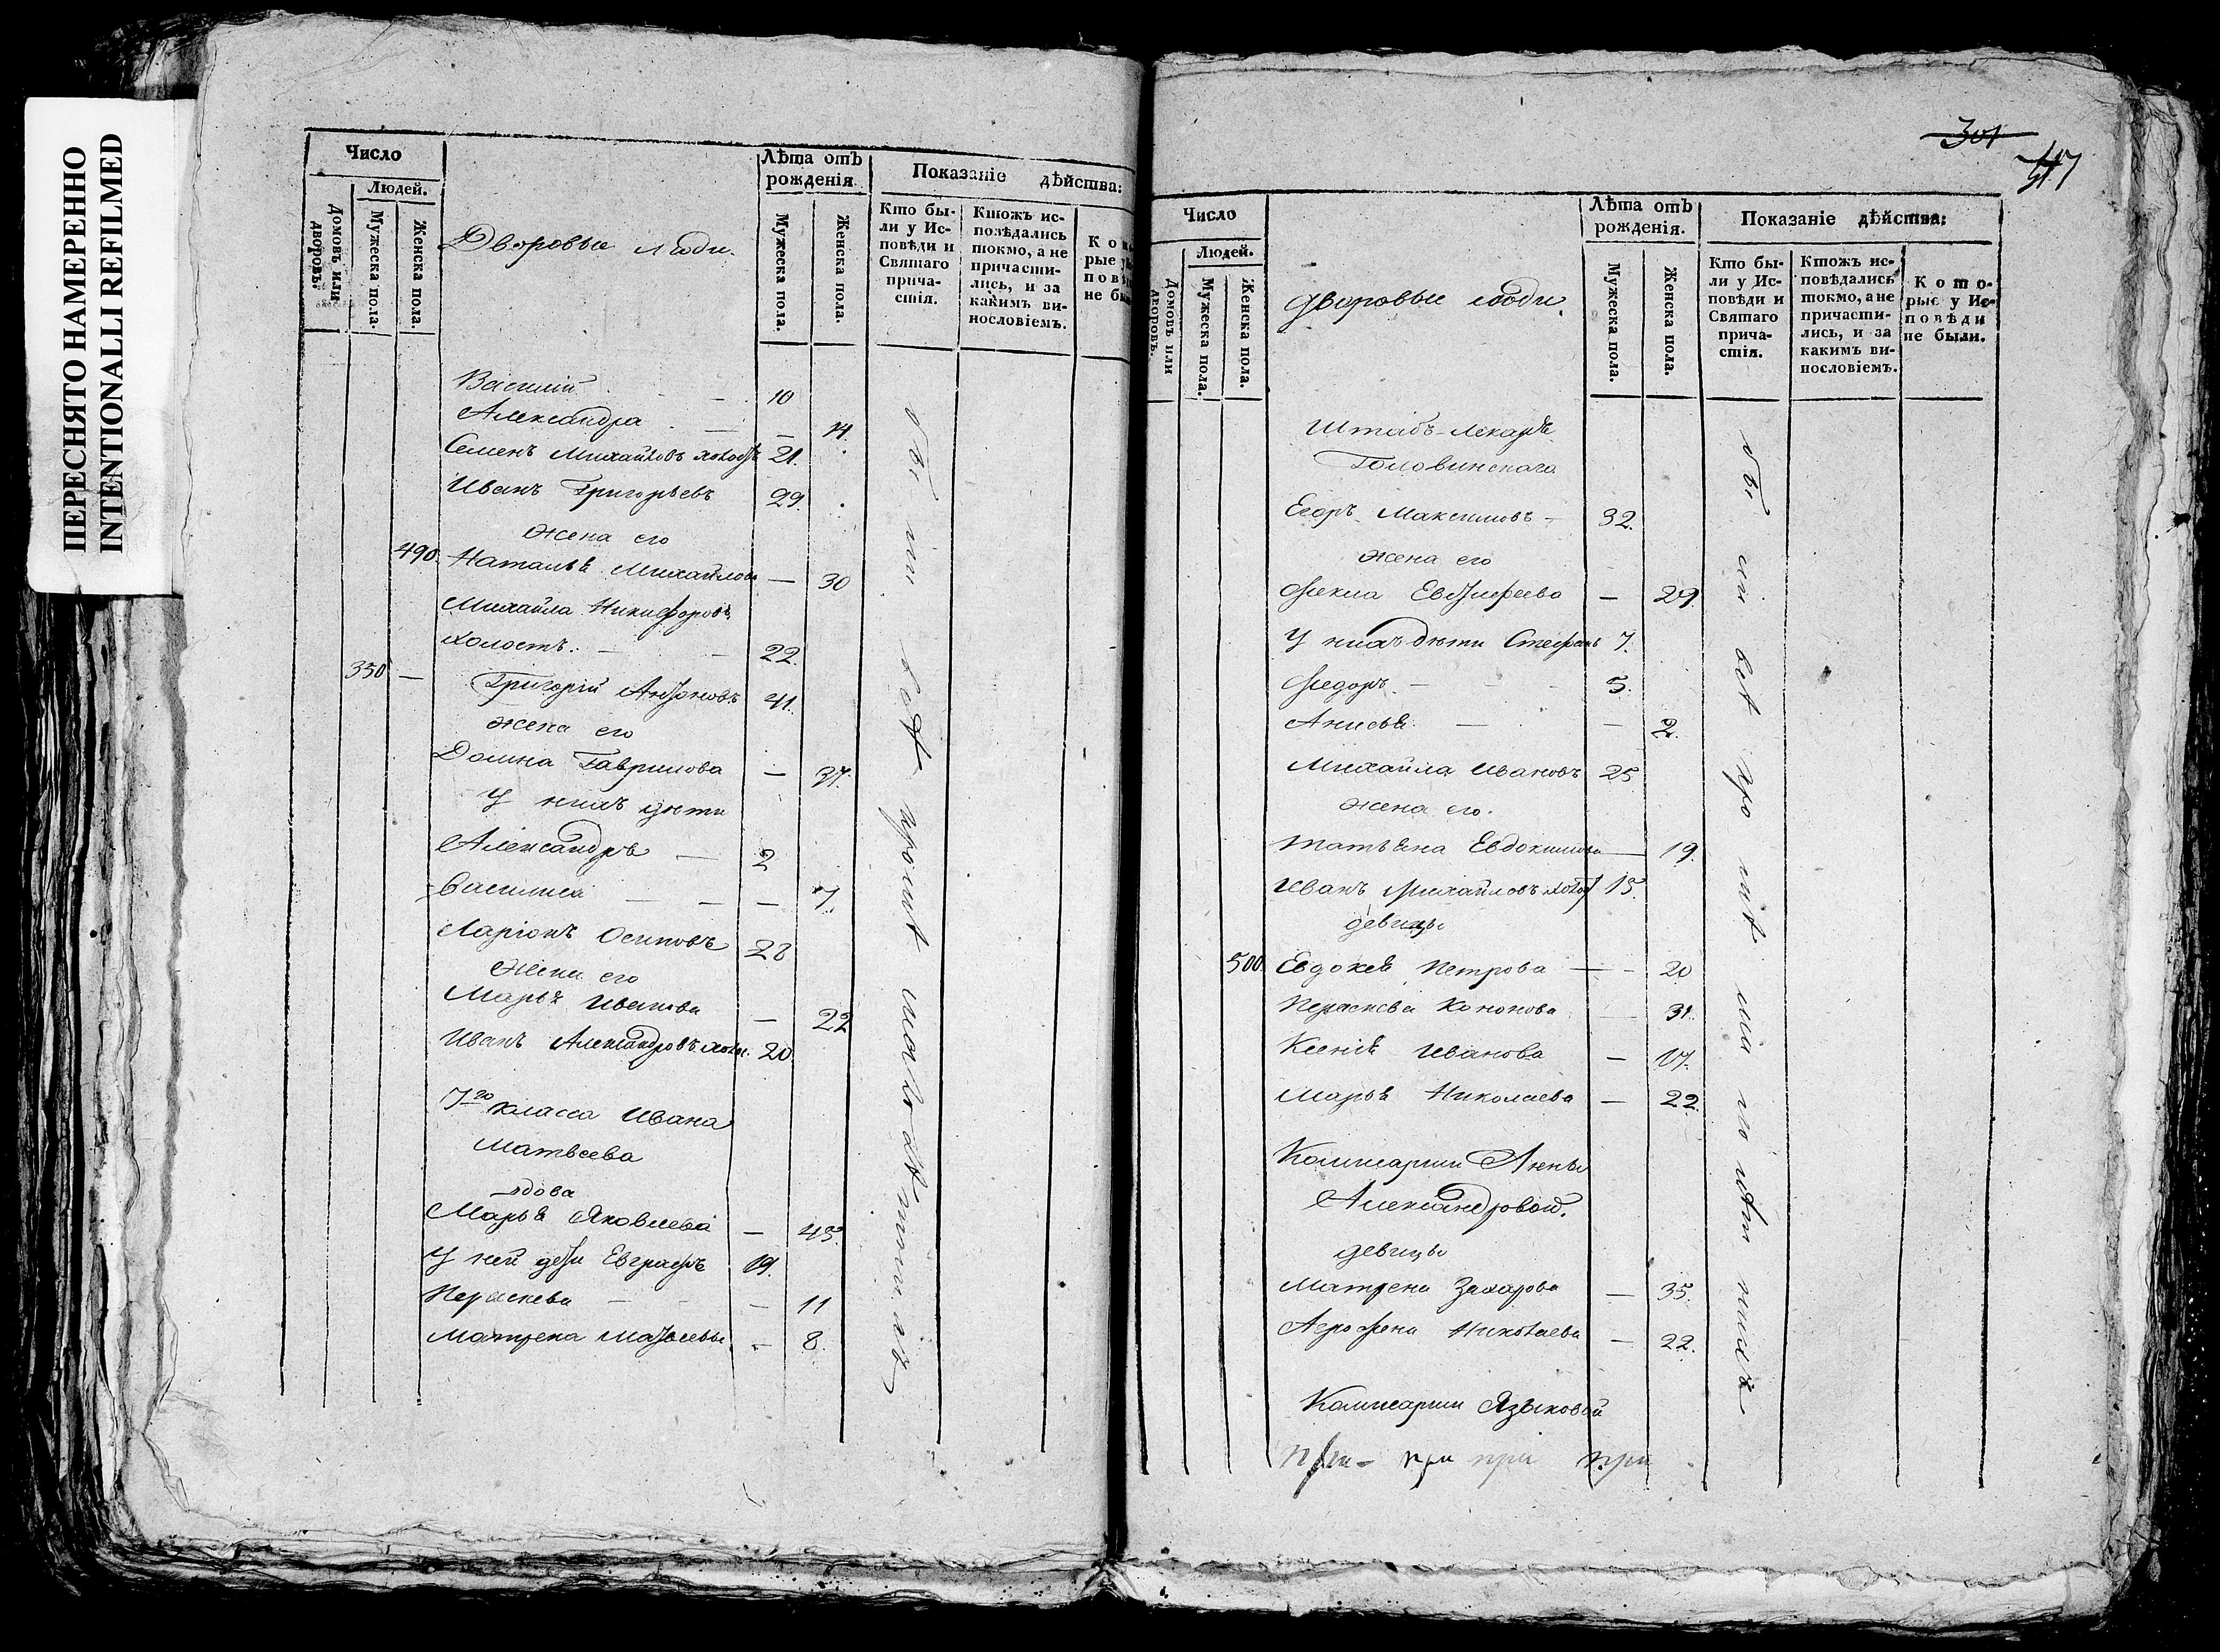 ПЕРЕСНЯТО НАМЕРЕННО
INTENTIONALLI REFILMED
Число
Людей.
Домовъ или дворовъ.
Мужеска пола.
Женска пола.
Дворовые люди.
Лѣта отъ рожденія
Мужеска пола.
Женска пола.
Показаніе дѣйства:
Кто были у Исповѣди и Святаго причастія.
Ктожъ исповѣдались токмо, а не причастились, и за какимъ винословіемъ.
Василій - 10
Александра - 14.
Семенъ Михайловъ холостъ 21.
Иванъ Григорьевъ 29.
жена его
490. Наталья Михайлова — 30
Михайла Никифоровъ
холостъ. - 22.
350 — Григорій Антоновъ 41.
жена его
Домна Гаврилова — 37.
У нихъ дѣти
Александръ — 2
Василиса — 7.
Ларіонъ Осиповъ 28
жена его
Марья Иванова — 22
Иванъ Александровъ холос. 20.
7го класса Ивана
Матвеева
вдова
Марья Яковлева — 45.
У ней дети Евграфъ 19.
Параскева — 11
Матрена Матвеева. — 8.
301
Число
Людей.
Домовъ или дворовъ.
Мужеска пола.
Женска пола.
дворовые люди.
Лѣта отъ рожденія.
Мужеска пола.
Женска пола.
Показаніе дѣйства:
Кто были у Исповѣди и Святаго причастія.
Ктожъ исповѣдались токмо, а не причастились, и за какимъ винословіемъ.
Которые у Исповѣди не были.
Штабъ-Лекаря
Головинскаго
Егоръ Максимовъ - 32.
жена его
Фекла Евтифеева — 29.
У нихъ дѣти Стефанъ 7.
Федоръ - 5.
Анисья — 2.
Михайла Ивановъ 25
жена его.
Татьяна Евдокимова — 19.
Иванъ Михайловъ холос 15.
девицы
500. Евдокея Петрова — 20
Параскева Кононова — 31.
Ксенія Иванова — 17.
Марья Николаева — 22.
Коммисарши Анны
Александровой.
девицы
Матрена Захарова — 35.
Агрофена Николаева — 22.
Коммисарши Языковой
при - при при при